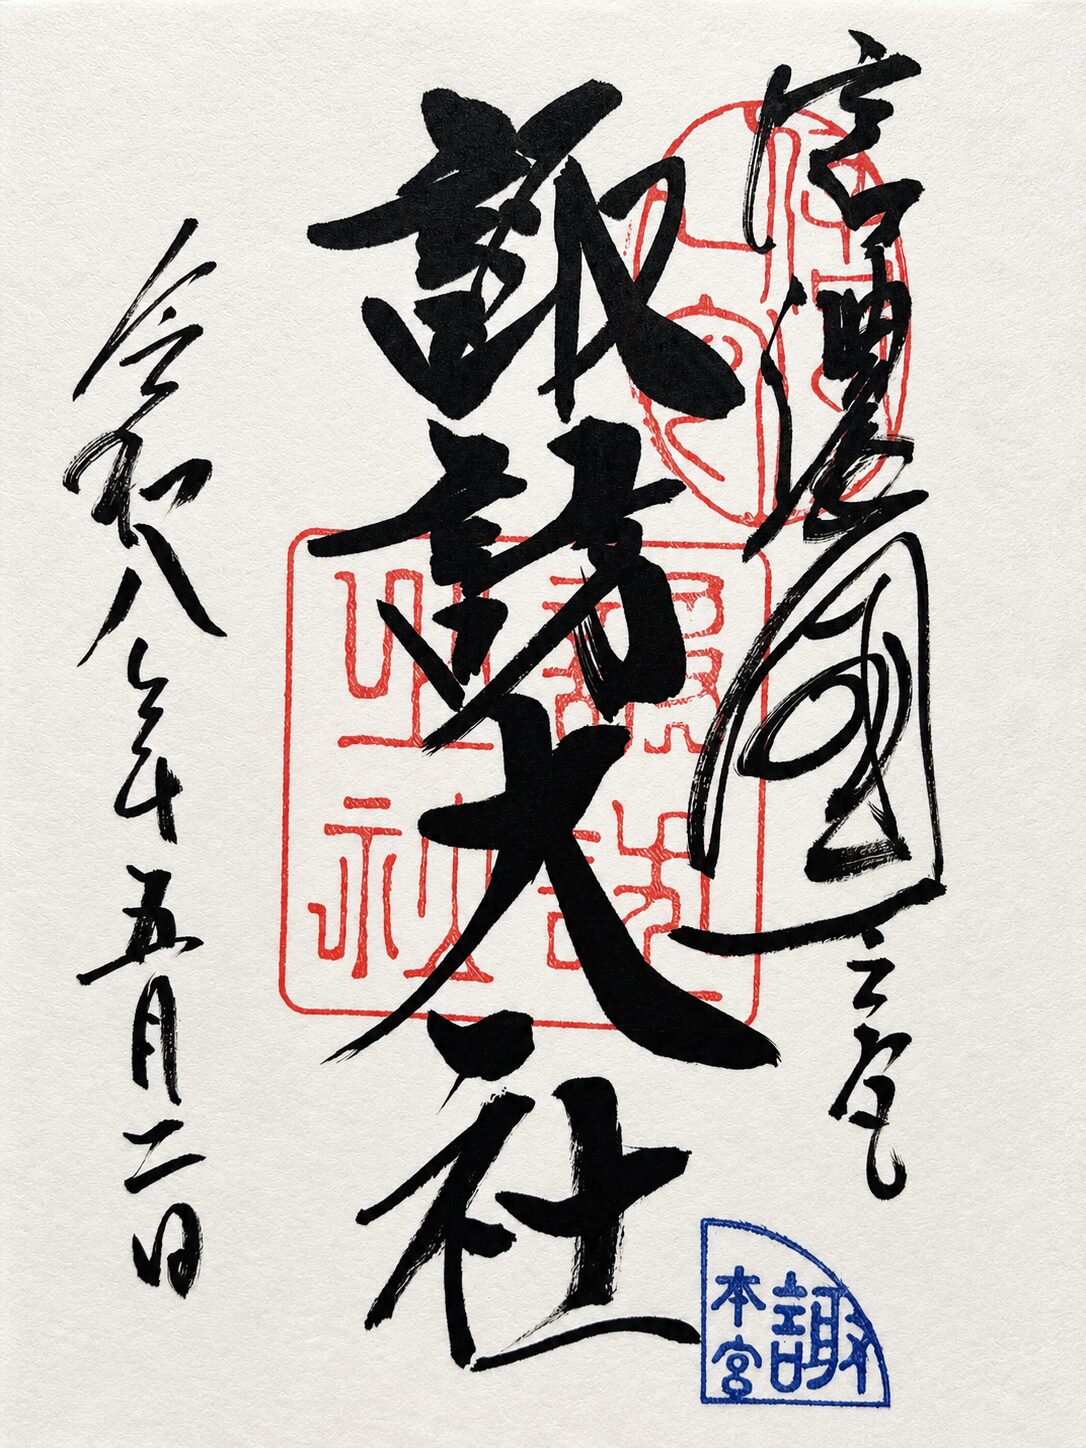 信濃國一之宮
諏訪大社
令和八年五月二日
諏
本宮